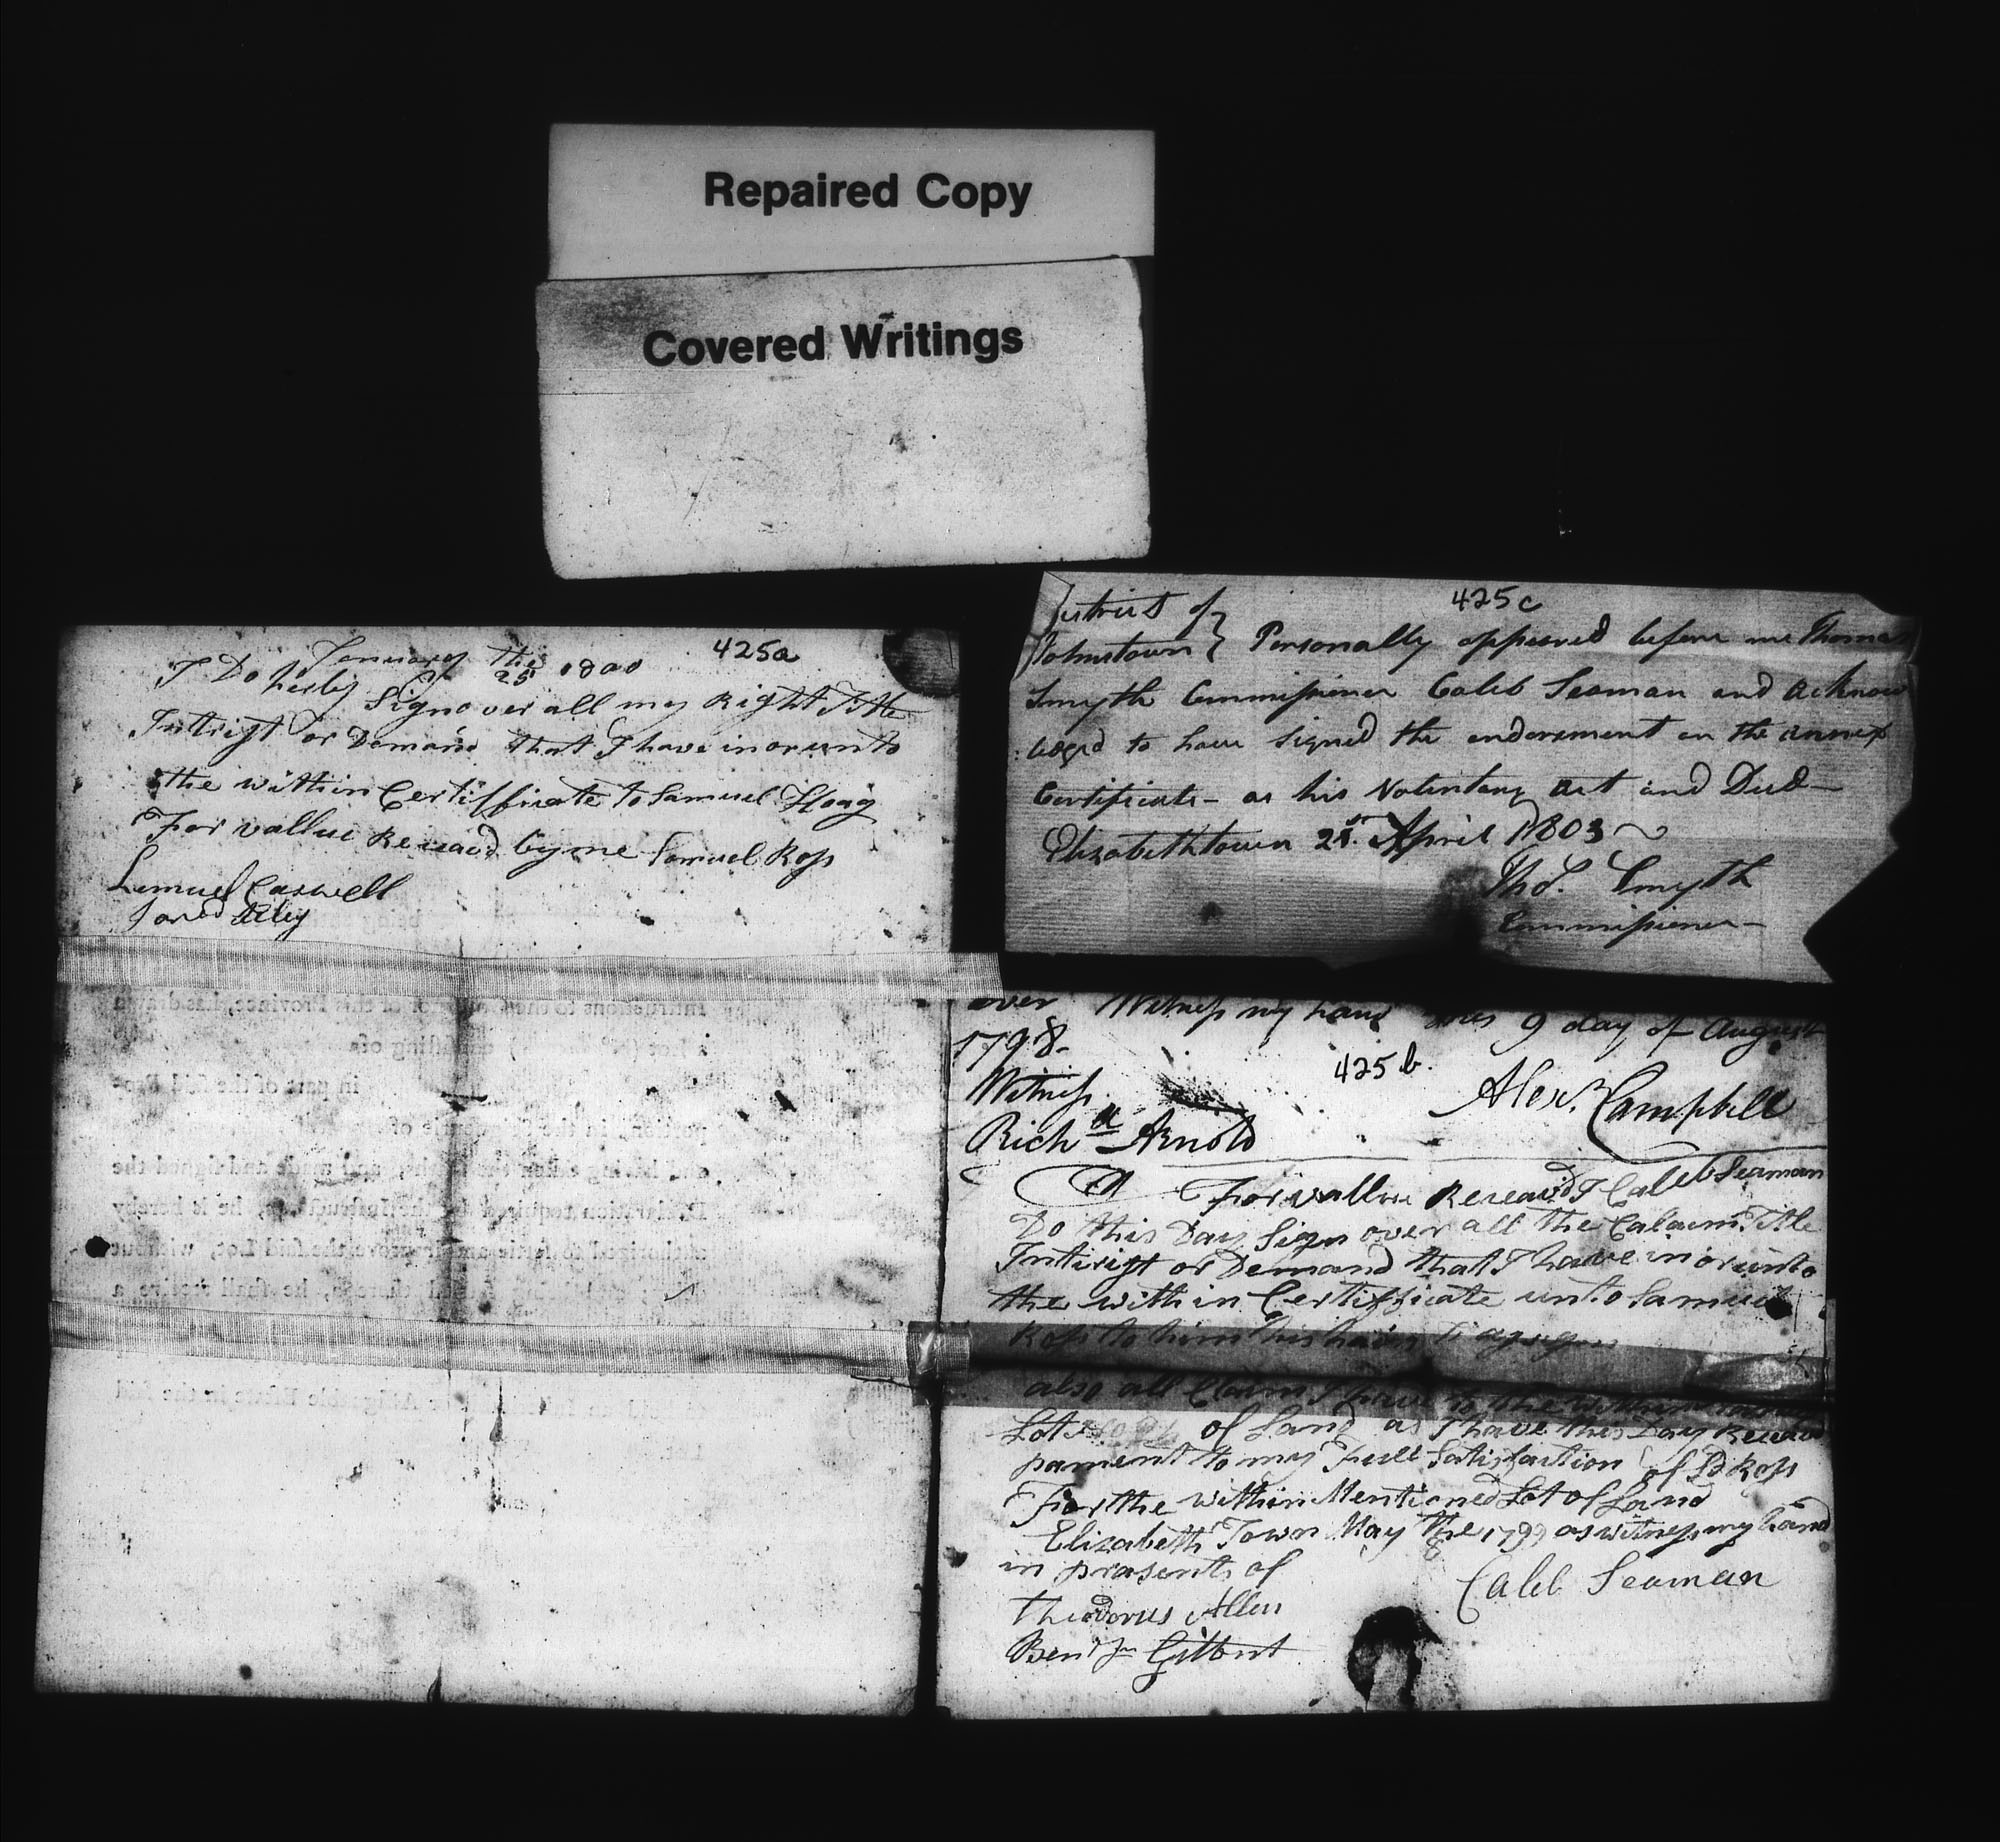 Repaired Copy
Covered Writings
425a
January the 25 1800
I Do herby Sign over all my Right Title
Intrigt or Demand that I have in or unto
the within Certifficate to Samuel Hoag
For vallue Receavd by me Samuel Ross
Lemuel Caswell
Jared
Intructions to the of this Province, has drawn
a Lot (No. ) consisting of
in part of the said Pro-
and having taken the and made and signed the
Declaration required by the Instructions, he is hereby
authorized to settle and improve the said Lot, without
thereon, he shall receive a
in the said
425c
District of
Johnstown } Personally appeared before me Thomas
Smyth Commissioner Caleb Seaman and Acknow
:ledged to have Signed the endorsment on the annex
Certificate - as his Voluntary Act and Deed -
Elizabethtown 21st April 1803
Thos. Smyth
Commissioner -
over Witness my hand this 9 day of August
1798.
425b.
Witness
Alexr. Campbell
Richd Arnold
For vallue Receavd I Caleb Seaman
Do this Day Sign over all the Calaim Title
Intirigt or Demand that I have in or unto
the with in Certifficate unto Samuel
Ross to him his hairs
also all Claim I have to the within
Lot of Land as I have this Day Receavd
pament to my Full Satisfaction of Sd Ross
For the within Mentioned Lot of Land
Elizabeth Town May the 1799 as witness my hand
in prasents of
Caleb Seaman
Theodorus Allen
Benjn Gilbert